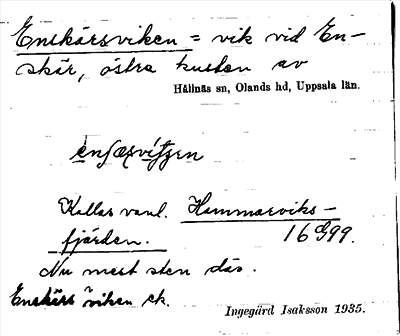 Enskärsviken = vik vid En-
skär, östra kusten av
Hållnäs sn, Olands hd, Uppsala län.
Kallas vanl. Hammarviks-
fjärden.
Nu mest sten där.
Enskärs viken ek.
Ingegärd Isaksson 1935.